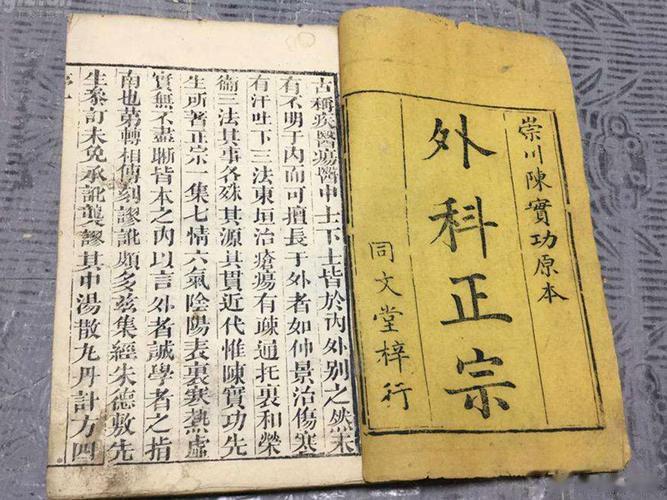 崇川陳實功原本
外科正宗
同文堂梓行
古稱疾醫瘍醫中士下士皆於內外別之然未
有不明于內而可擅長于外者如仲景治傷寒
有汗吐下三法東垣治瘡瘍有疎通托裏和榮
衞三法其事各殊其源其貫近代惟陳實功先
生所著正宗一集七情六氣陰陽表裏寒熱虛
實無不盡晰皆本之內以言外者誠學者之指
南也第轉相傳刻謬訛頗多茲集經朱德敷先
生參訂未免承訛襲謬其中湯散丸丹計方四